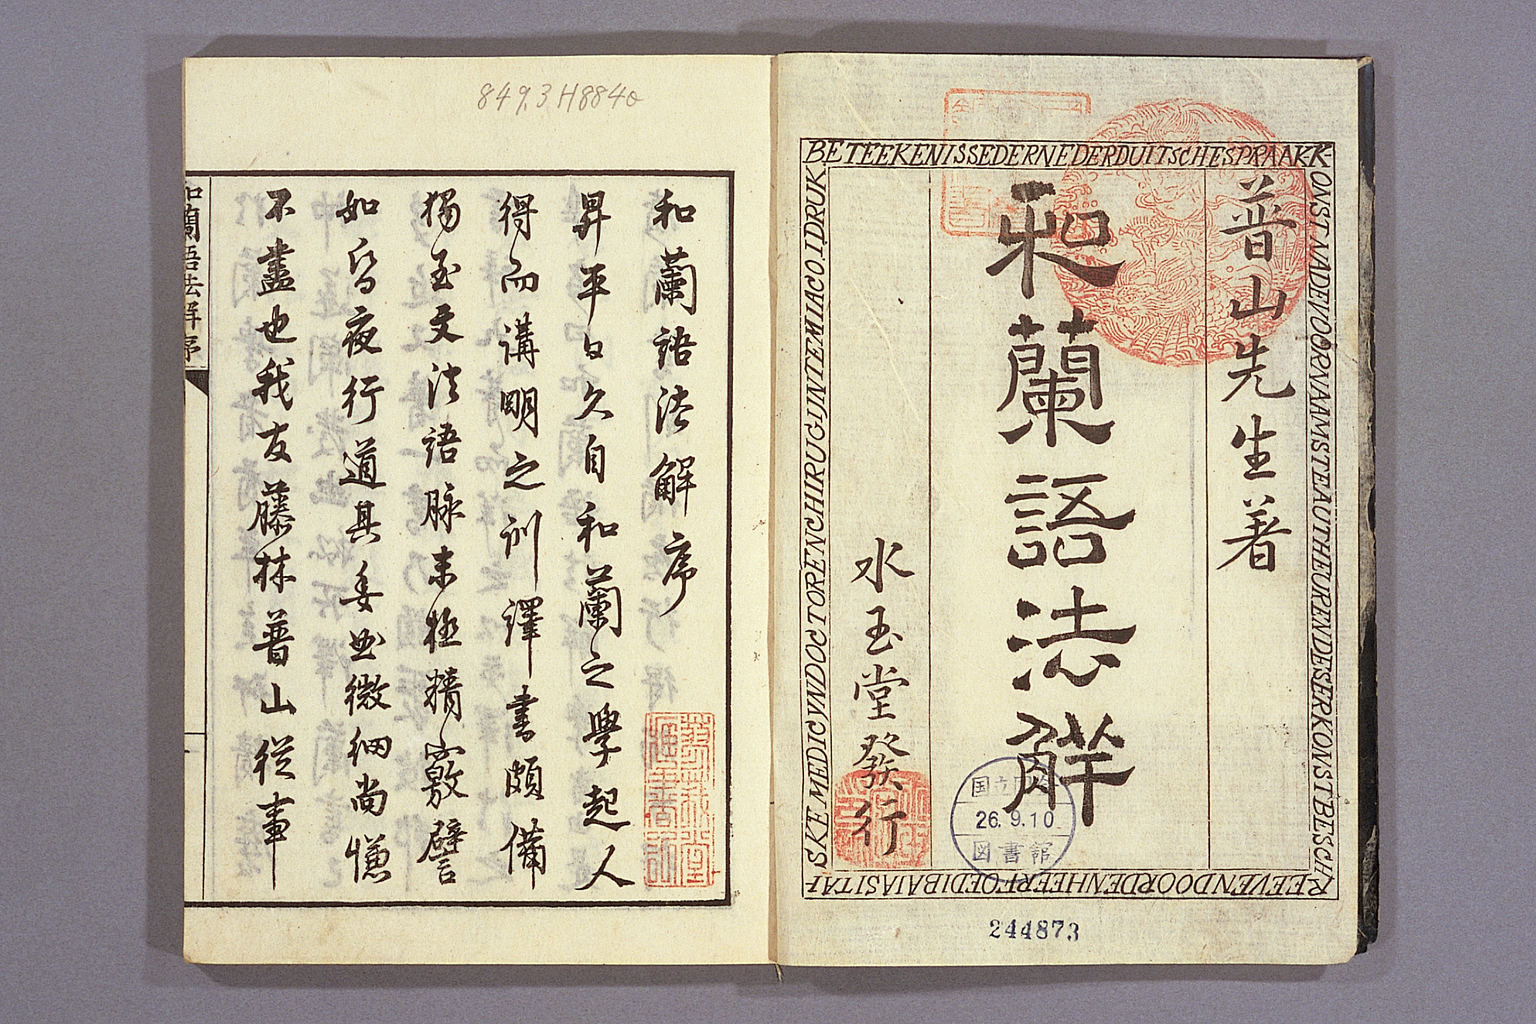 普山先生著
和蘭語法解
水玉堂發行
BETEEKENISSEDERNEDERDUITSCHESPRAAKK
ONST
国立
26.9.10
図書館
244873
849.3 H884o
和蘭語法解序
昇平日久自和蘭之學起人
得而講明之訓譯書頗備
獨至文法語脉未極精竅譬
如瞽夜行道其委曲微細尚慊
不盡也我友藤林普山從事
和蘭語法解序